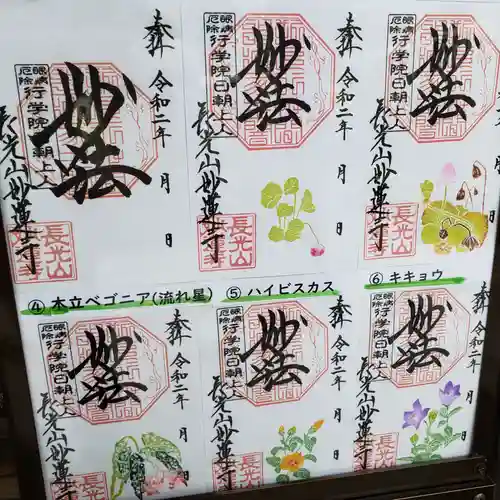 奉拝 令和二年 月 日
眼病
厄除
行学院日朝上人
妙法
長光山妙蓮寺
長光山
奉拝 令和二年 月 日
眼病
厄除
行学院日朝上人
妙法
長光山妙蓮寺
長光山
月
眼病
厄除
行学院日朝上人
妙法
長光山妙蓮寺
長光山
④ 木立ベゴニア(流れ星)
⑤ ハイビスカス
⑥ キキョウ
奉拝 令和二年 月 日
眼病
厄除
行学院日朝上人
妙法
長光山妙蓮寺
長光山
奉拝 令和二年 月 日
眼病
厄除
行学院日朝上人
妙法
長光山妙蓮寺
奉拝 令和二年 月 日
眼病
厄除
行学院日朝上人
妙法
長光山妙蓮寺
長光山